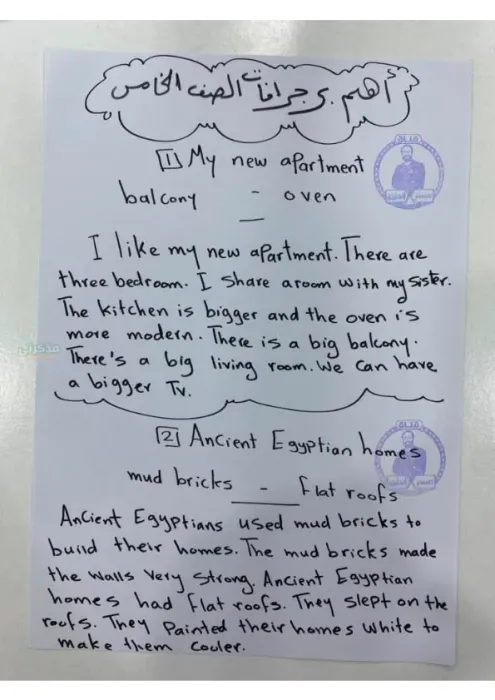 أهم برجرافات الصف الخامس
[1] My new apartment
balcony - oven
I like my new apartment. There are
three bedroom. I share aroom with my sister.
The kitchen is bigger and the oven is
more modern. There is a big balcony.
There's a big living room. We can have
a bigger Tv.
[2] Ancient Egyptian homes
mud bricks - flat roofs
Ancient Egyptians used mud bricks to
build their homes. The mud bricks made
the walls very strong. Ancient Egyptian
homes had flat roofs. They slept on the
roofs. They Painted their homes white to
make them cooler.
مذكرتي